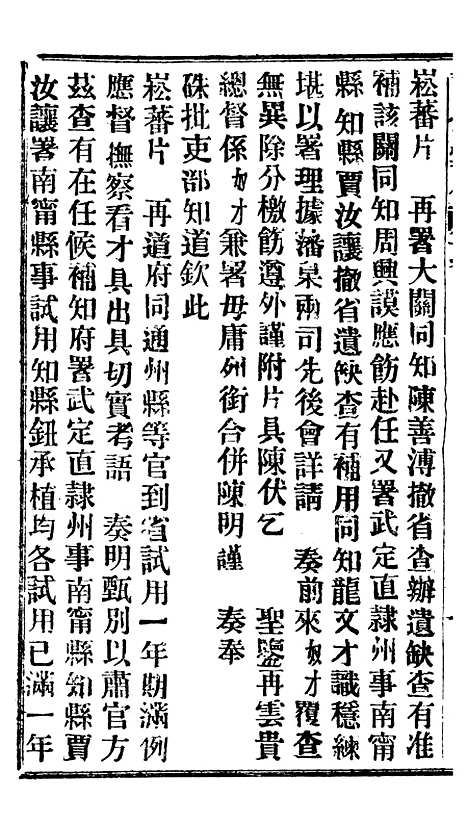 崧蕃片　再署大關同知陳善溥撤省查辦遺缺查有准
補該關同知周興謨應飭赴任又署武定直隸州事南甯
縣知縣賈汝讓撤省遺缺查有補用同知龍文才識穩練
堪以署理據藩臬兩司先後會詳請　奏前來奴才覆查
無異除分檄飭遵外謹附片具陳伏乞　聖鑒再雲貴
總督係奴才兼署毋庸列銜合併陳明謹　奏奉
硃批吏部知道欽此
崧蕃片　再道府同通州縣等官到省試用一年期滿例
應督撫察看才具出具切實考語　奏明甄別以肅官方
茲查有在任候補知府署武定直隸州事南甯縣知縣賈
汝讓署南甯縣事試用知縣鈕承植均各試用已滿一年